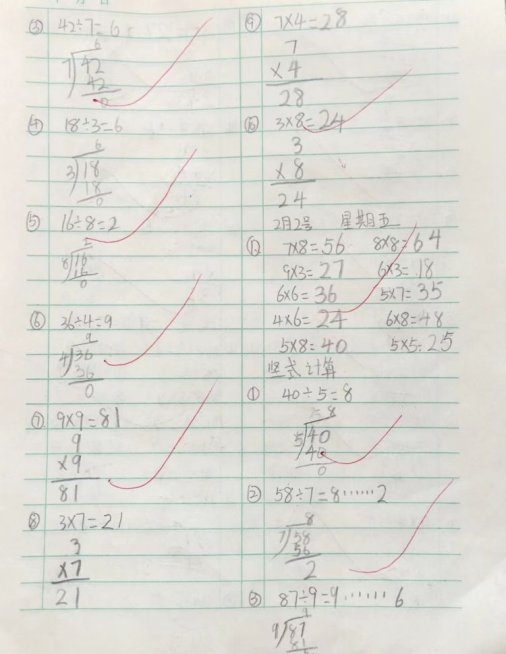 ③ 42÷7=6
6
7 42
42
0
④ 18÷3=6
6
3 18
18
0
⑤ 16÷8=2
2
8 16
16
0
⑥ 36÷4=9
9
4 36
36
0
⑦ 9×9=81
9
×9
81
⑧ 3×7=21
3
×7
21
⑨ 7×4=28
7
×4
28
⑩ 3×8=24
3
×8
24
2月2号 星期五
7×8=56 8×8=64
9×3=27 6×3=18
6×6=36 5×7=35
4×6=24 6×8=48
5×8=40 5×5=25
竖式计算
① 40÷5=8
8
5 40
40
0
② 58÷7=8……2
8
7 58
56
2
③ 87÷9=9……6
9
9 87
81